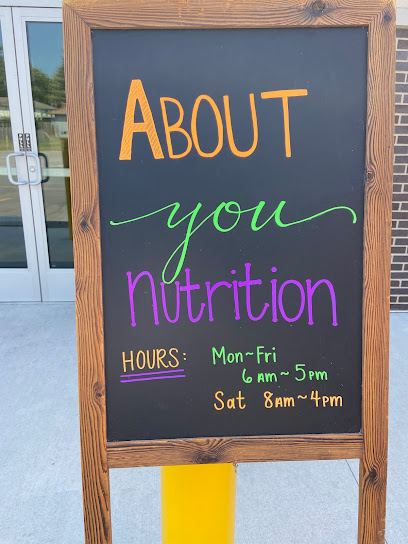 ABOUT
you
nutrition
HOURS: Mon~Fri
6 AM~ 5 PM
Sat 8AM~4PM